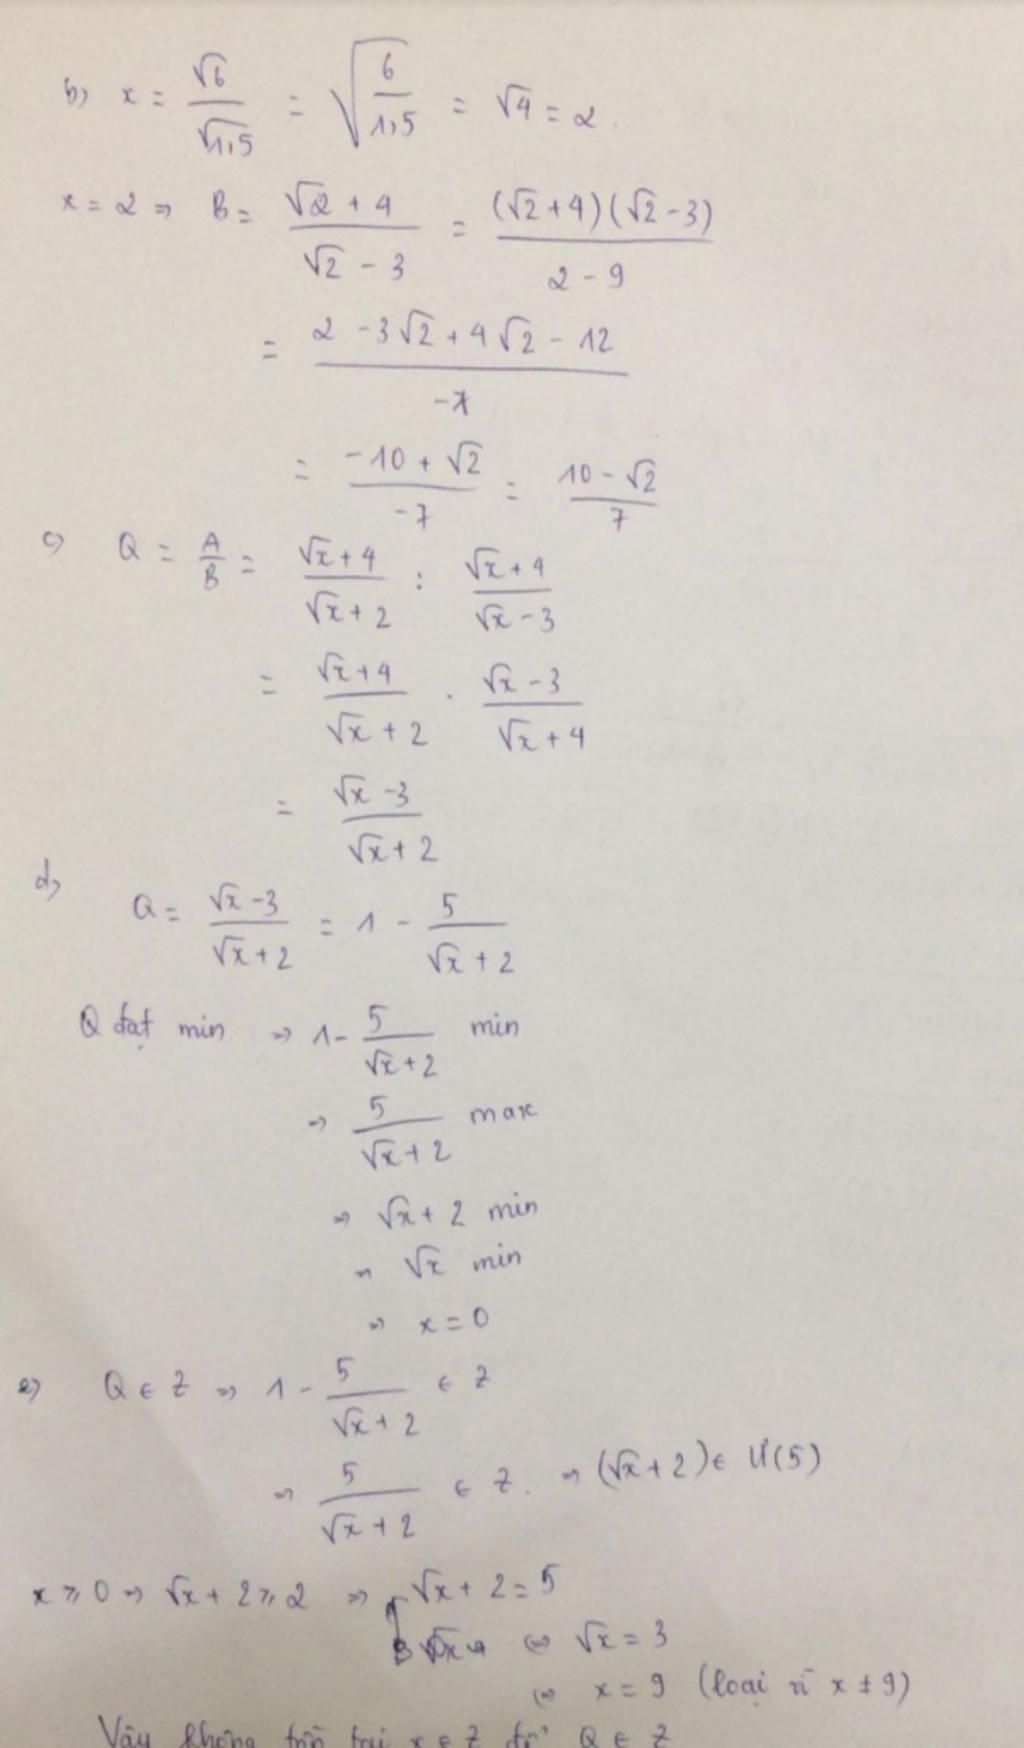 b) x = √6/√1,5 = √(6/1,5) = √4 = 2.
x = 2 ⇒ B = (√2 + 4)/(√2 - 3) = (√2 + 4)(√2 - 3)/(2 - 9)
= (2 - 3√2 + 4√2 - 12)/(-7)
= (-10 + √2)/(-7) = (10 - √2)/7
c) Q = A/B = (√x + 4)/(√x + 2) : (√x + 4)/(√x - 3)
= (√x + 4)/(√x + 2) . (√x - 3)/(√x + 4)
= (√x - 3)/(√x + 2)
d) Q = (√x - 3)/(√x + 2) = 1 - 5/(√x + 2)
Q đạt min ⇒ 1 - 5/(√x + 2) min
⇒ 5/(√x + 2) max
⇒ √x + 2 min
⇒ √x min
⇒ x = 0
e) Q ∈ Z ⇒ 1 - 5/(√x + 2) ∈ Z
⇒ 5/(√x + 2) ∈ Z. ⇒ (√x + 2) ∈ Ư(5)
x ≥ 0 ⇒ √x + 2 ≥ 2 ⇒ √x + 2 = 5
⇔ √x = 3
⇔ x = 9 (loại vì x ≠ 9)
Vậy không tồn tại x ∈ Z để Q ∈ Z